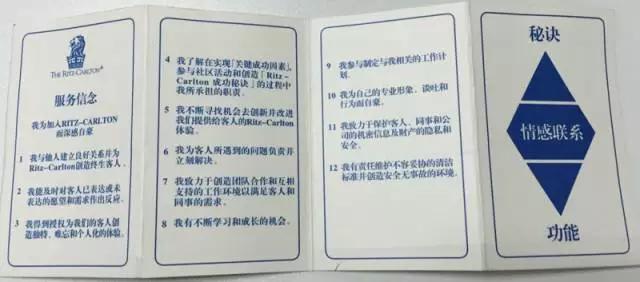 THE RITZ-CARLTON®
服务信念
我为加入RITZ-CARLTON
而深感自豪
1 我与他人建立良好关系并为
Ritz-Carlton创造终生客人。
2 我能及时对客人已表达或未
表达的愿望和需求作出反应。
3 我得到授权为我们的客人创
造独特、难忘和个人化的体验。
4 我了解在实现「关键成功因素」,
参与社区活动和创造「Ritz-
Carlton 成功秘诀」的过程中
我所承担的职责。
5 我不断寻找机会去创新并改进
我们提供给客人的Ritz-Carlton
体验。
6 我为客人所遇到的问题负责并
立刻解决。
7 我致力于创造团队合作和互相
支持的工作环境以满足客人和
同事的需求。
8 我有不断学习和成长的机会。
9 我参与制定与我相关的工作计
划。
10 我为自己的专业形象、谈吐和
行为而自豪。
11 我致力于保护客人、同事和公
司的机密信息及财产的隐私和
安全。
12 我有责任维护不容妥协的清洁
标准并创造安全无事故的环境。
秘诀
情感联系
功能